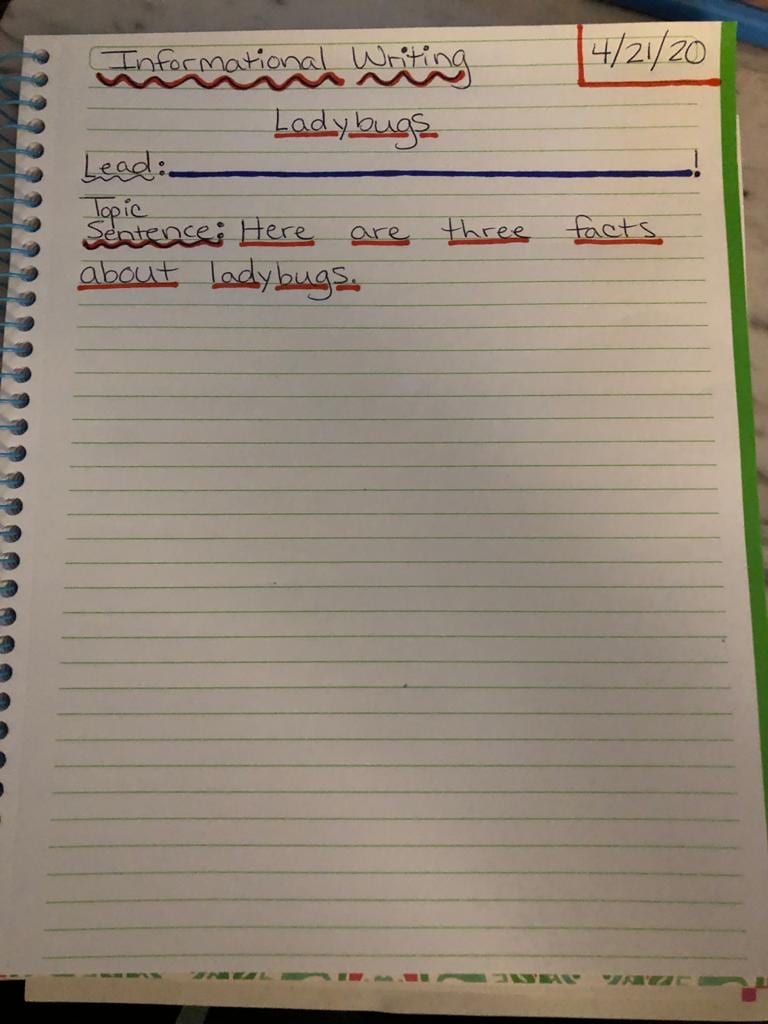 Informational Writing
4/21/20
Ladybugs
Lead: !
Topic
Sentence: Here are three facts
about ladybugs.